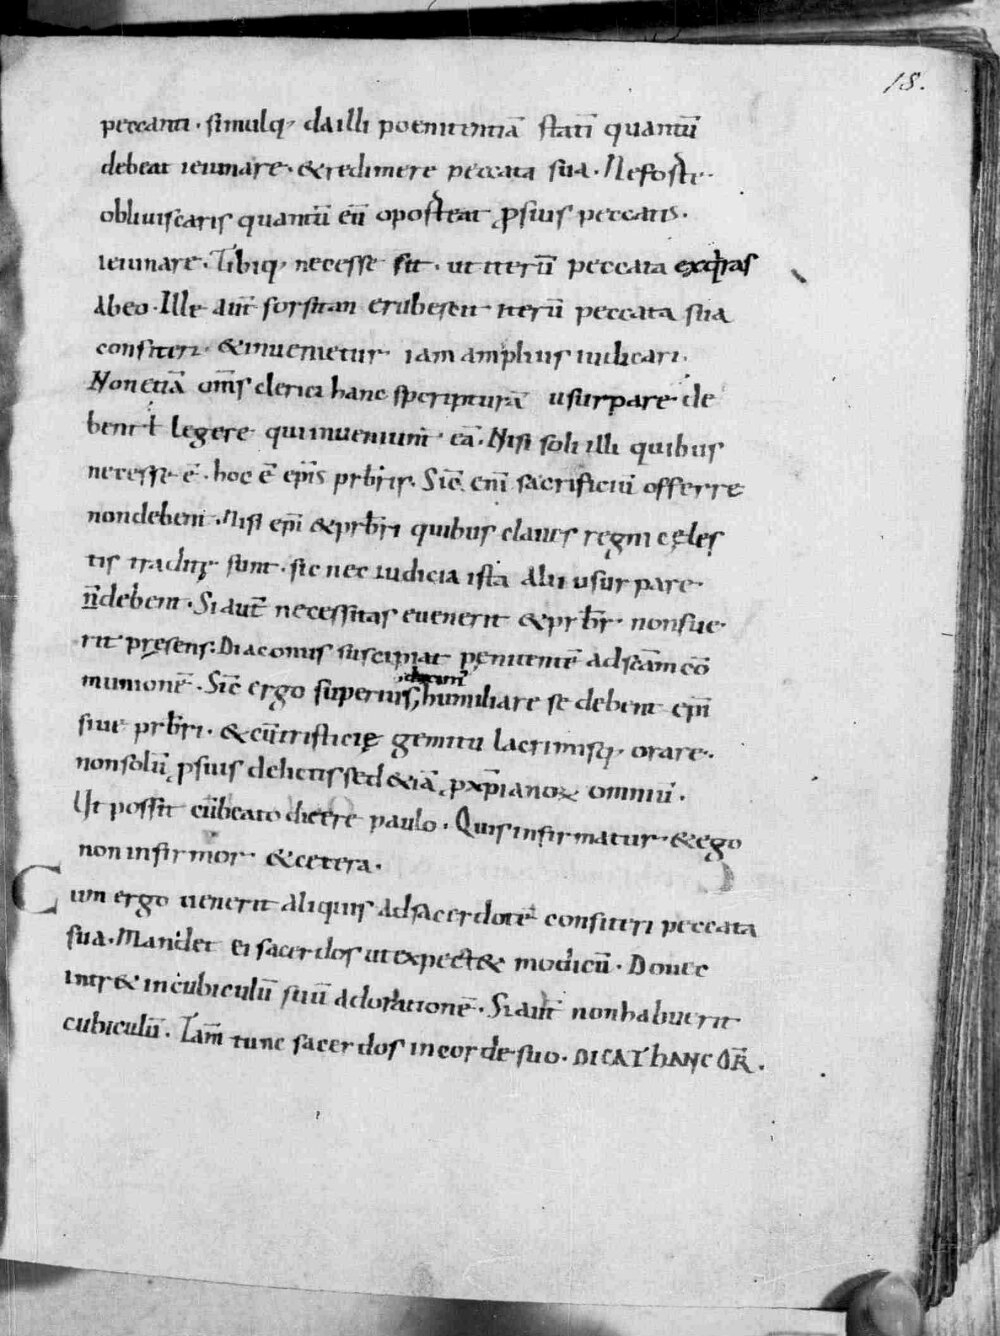 18.
peccanti · simulq; da illi poenitentiā statī quantū
debeat ieiunare · & redimere peccata sua · Ne poste
obliuiscaris quantū eū oporteat ꝓ suis peccatis ·
ieiunare · Tibiq; necesse sit · ut iterū peccata exqͥras
Ab eo · Ille aut̄ forsitan erubescit iterū peccata sua
confiteri · & inuenietur iam amplius iudicari ·
Non etiā om̄s clerici hanc scripturā usurpare de
bent ł legere qui inueniunt eā · Nisi soli illi quibus
necesse ē · hoc ē ep̄is prb̄ris · Sic̄ eni̅ sacrificiū offerre
non debent · Nisi ep̄i & prb̄ri quibus claues regni cęles
tis traditę sunt · sic nec iudicia ista alii usurpare
n̄ debent · Si aut̄ necessitas euenerit & prb̄r non fue
rit pręsens · Diaconus suscipiat pęnitentē ad sc̄am cō
munionē · Sic̄ ergo superius diximꝰ humiliare se debent ep̄i
siue prb̄ri · & cū tristicię gemitu lacrimisq; orare ·
non solū ꝓ suis delictis sed & iā ꝓ xp̄ianoꝝ omniū ·
Ut possit cū beato dicere paulo · Quis infirmatur · & ego
non infirmor · & cetera ·
Cum ergo uenerit aliquis ad sacerdotē confiteri peccata
sua · Mandet ei sacerdos ut expect& modicū · Donec
intr& in cubiculū suū ad orationē · Si aut̄ non habuerit
cubiculū · Tam̄ tunc sacerdos in corde suo · DICAT hANC OR̄ ·